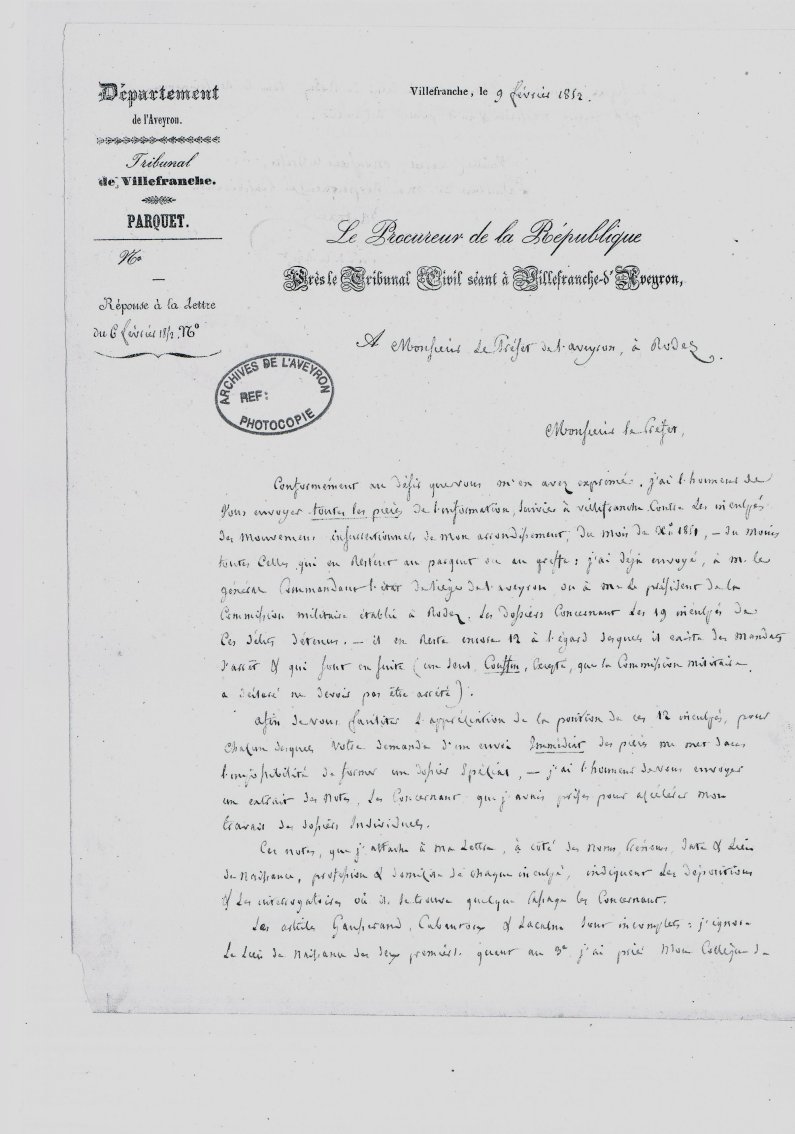 Département
de l'Aveyron.
Tribunal
de Villefranche.
PARQUET.
No
Réponse à la Lettre
du 6 février 1852. No
Villefranche, le 9 février 1852.
Le Procureur de la République
Près le Tribunal Civil séant à Villefranche-d'Aveyron,
A Monsieur Le Préfet de l'aveyron, à Rodez.
ARCHIVES DE L'AVEYRON
REF:
PHOTOCOPIE
Monsieur le Préfet,
Conformément au désir que vous m'en avez exprimé, j'ai l'honneur de
Vous envoyer toutes les pièces de l'information, suivie à villefranche Contre Les inculpés
des mouvements insurrectionnels de mon arrondissement, du mois de Xbre 1851, – du moins
toutes Celles qui en Restent au parquet ou au greffe; j'ai déjà envoyé, à m. le
général Commandant l'état de siège de l'aveyron ou à m. Le président de la
Commission militaire établie à Rodez, Les dossiers Concernant Les 19 inculpés de
Ces délits détenus. – il en Reste encore 12 à l'égard desquels il existe des mandats
d'arrêt & qui sont en fuite (un seul, Couffin, Excepté, que la Commission militaire
a déclaré ne devoir pas être arrêté).
Afin de vous faciliter L'appréciation de la position de ces 12 inculpés, pour
chacun desquels Votre demande d'un envoi Immédiat des pièces me met dans
l'impossibilité de former un dossier Spécial, – j'ai l'honneur de vous envoyer
un extrait des Notes, Les Concernant, que j'avais prises pour accélérer mon
travail des dossiers Individuels.
Ces notes, que j'attache à ma Lettre, à côté des Noms, Prénoms, date & Lieu
de Naissance, profession & domicile de chaque inculpé, indiquent Les dépositions
& Les interrogatoires où il se trouve quelque passage les Concernant.
Les articles Gausserand, Cabantous & Lacalm sont incomplets: j'ignore
Le Lieu de Naissance des deux premiers. quant au 3e j'ai prié Mon Collègue de